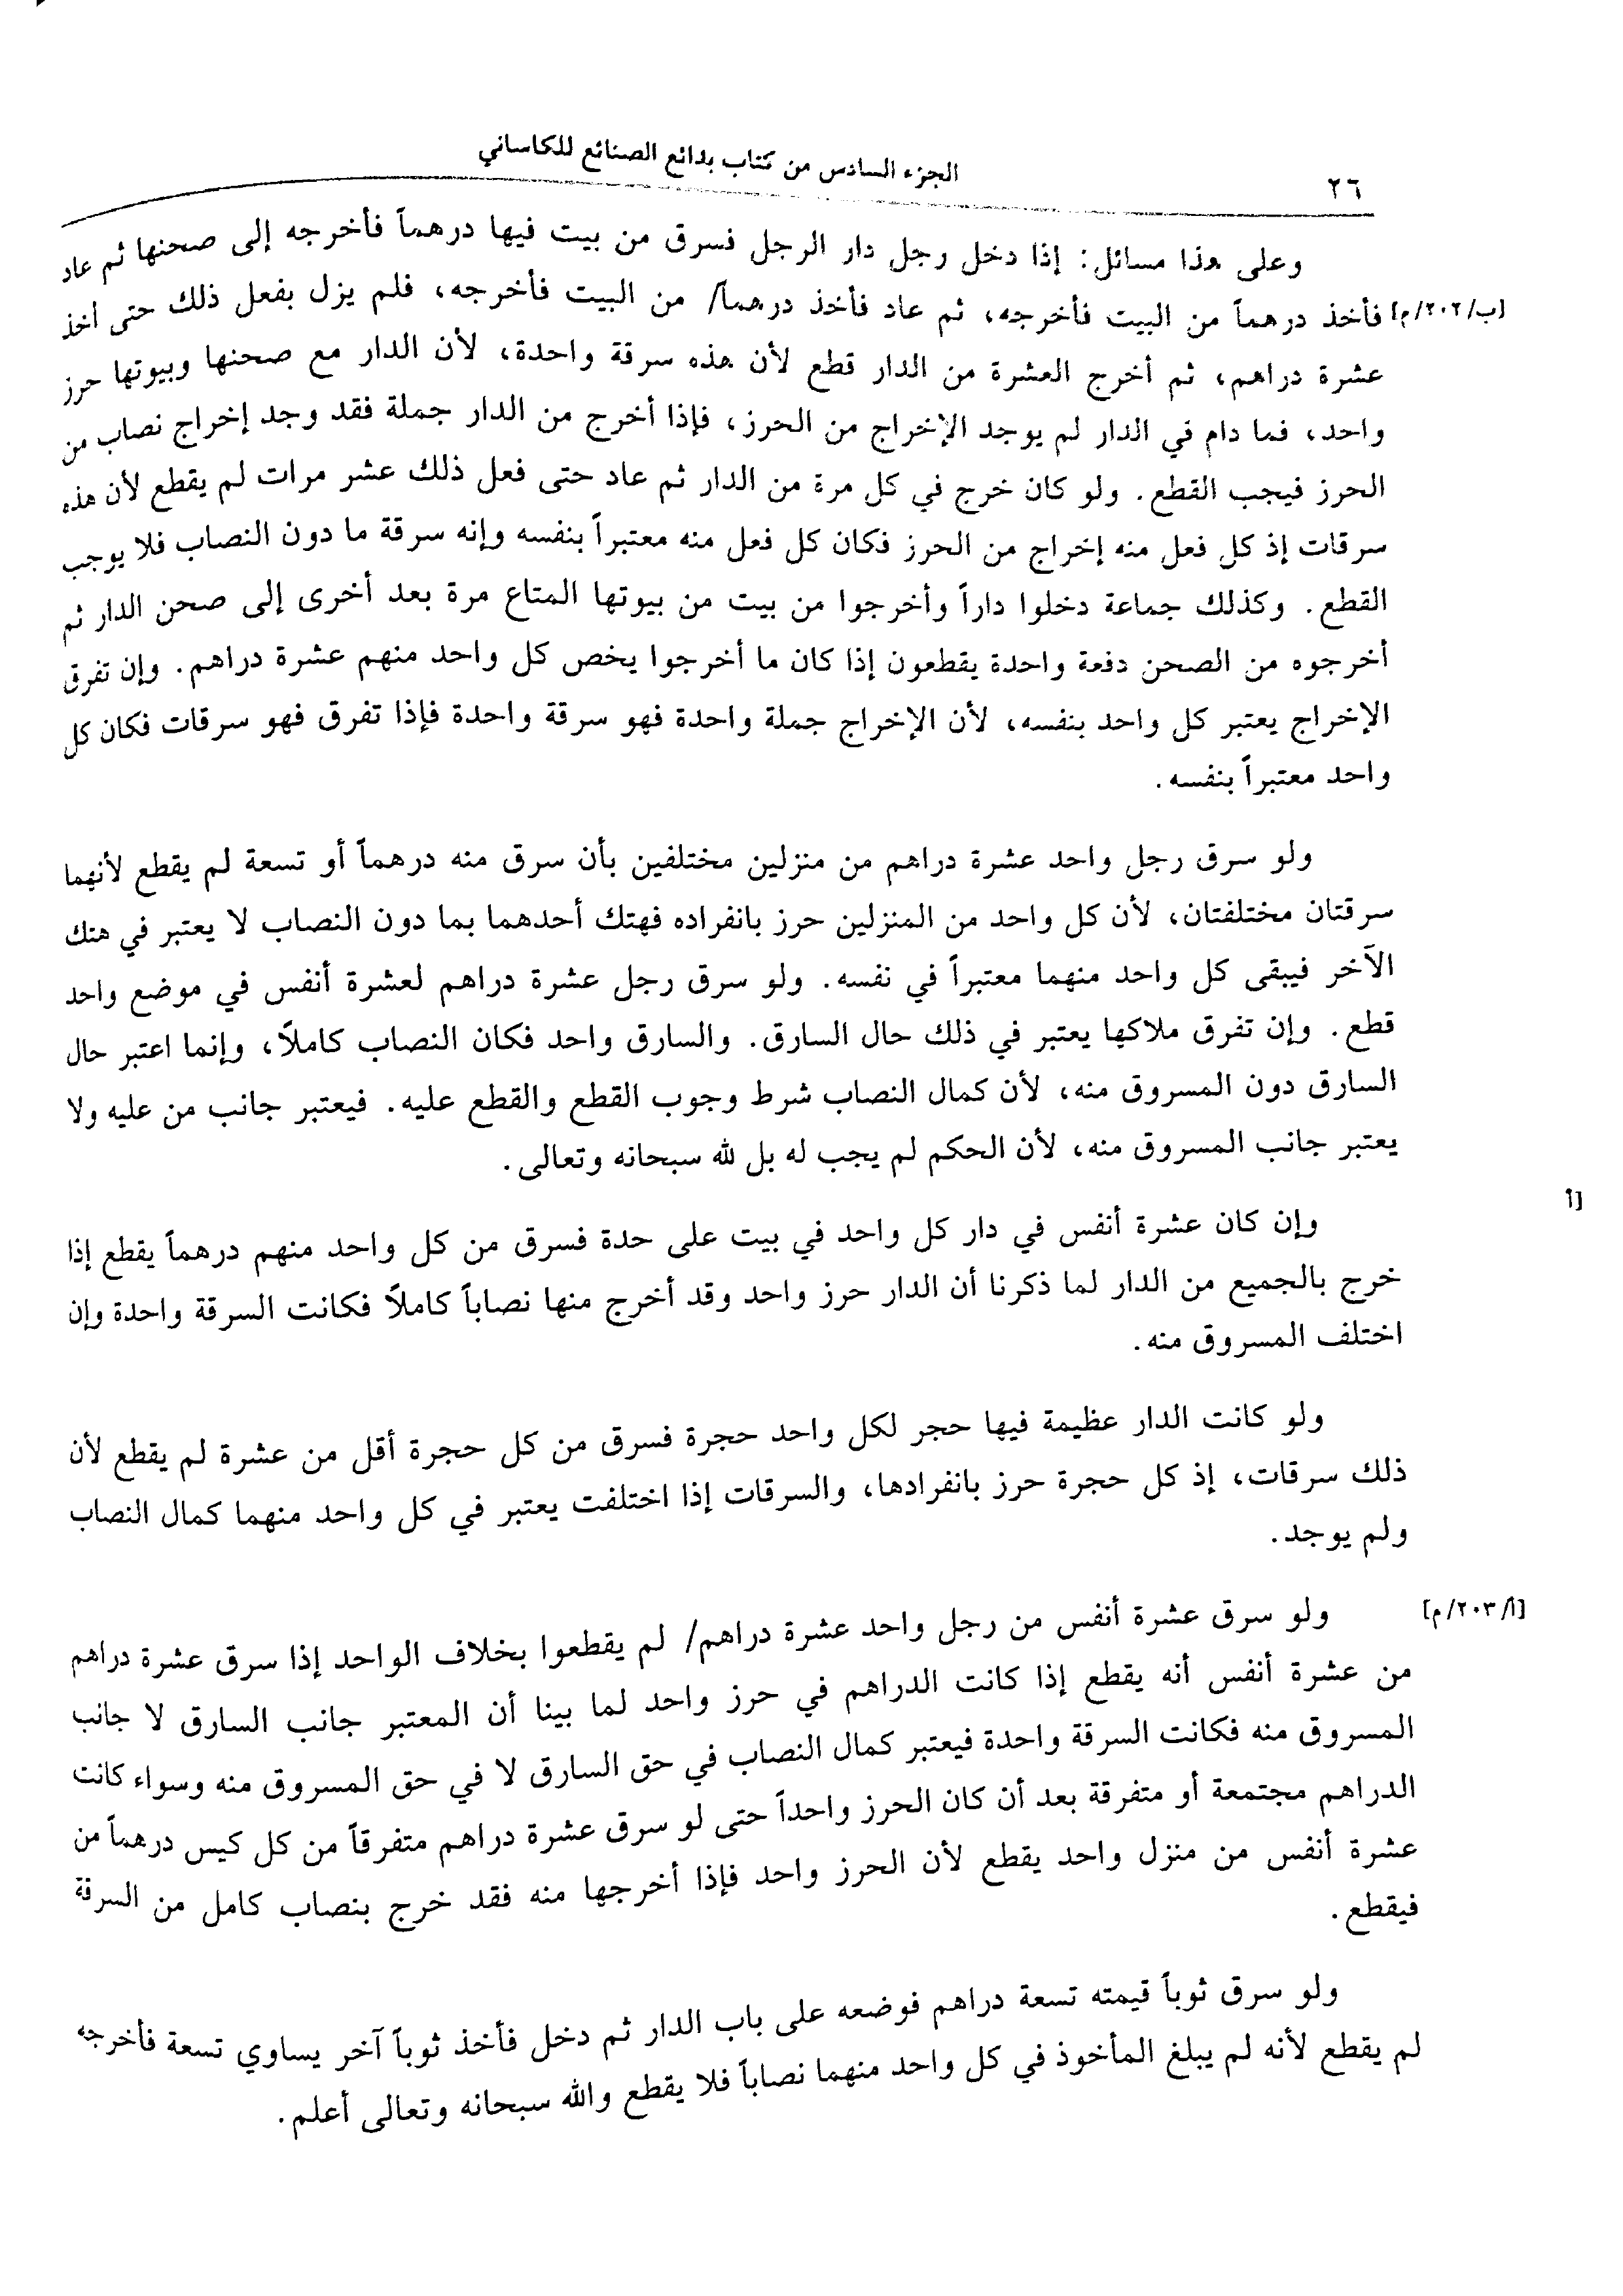 الجزء السادس من كتاب بدائع الصنائع للكاساني
٢٦
وعلى هذا مسائل: إذا دخل رجل دار الرجل فسرق من بيت فيها درهماً فأخرجه إلى صحنها ثم عاد
[ب/٢٠٢/م] فأخذ درهماً من البيت فأخرجه، ثم عاد فأخذ درهماً/ من البيت فأخرجه، فلم يزل بفعل ذلك حتى أخذ
عشرة دراهم، ثم أخرج العشرة من الدار قطع لأن هذه سرقة واحدة، لأن الدار مع صحنها وبيوتها حرز
واحد، فما دام في الدار لم يوجد الإخراج من الحرز، فإذا أخرج من الدار جملة فقد وجد إخراج نصاب من
الحرز فيجب القطع. ولو كان خرج في كل مرة من الدار ثم عاد حتى فعل ذلك عشر مرات لم يقطع لأن هذه
سرقات إذ كل فعل منه إخراج من الحرز فكان كل فعل منه معتبراً بنفسه وإنه سرقة ما دون النصاب فلا يوجب
القطع. وكذلك جماعة دخلوا داراً وأخرجوا من بيت من بيوتها المتاع مرة بعد أخرى إلى صحن الدار ثم
أخرجوه من الصحن دفعة واحدة يقطعون إذا كان ما أخرجوا يخص كل واحد منهم عشرة دراهم. وإن تفرق
الإخراج يعتبر كل واحد بنفسه، لأن الإخراج جملة واحدة فهو سرقة واحدة فإذا تفرق فهو سرقات فكان كل
واحد معتبراً بنفسه.
ولو سرق رجل واحد عشرة دراهم من منزلين مختلفين بأن سرق منه درهماً أو تسعة لم يقطع لأنهما
سرقتان مختلفتان، لأن كل واحد من المنزلين حرز بانفراده فهتك أحدهما بما دون النصاب لا يعتبر في هتك
الآخر فيبقى كل واحد منهما معتبراً في نفسه. ولو سرق رجل عشرة دراهم لعشرة أنفس في موضع واحد
قطع. وإن تفرق ملاكها يعتبر في ذلك حال السارق. والسارق واحد فكان النصاب كاملاً، وإنما اعتبر حال
السارق دون المسروق منه، لأن كمال النصاب شرط وجوب القطع والقطع عليه. فيعتبر جانب من عليه ولا
يعتبر جانب المسروق منه، لأن الحكم لم يجب له بل لله سبحانه وتعالى.
[أ
وإن كان عشرة أنفس في دار كل واحد في بيت على حدة فسرق من كل واحد منهم درهماً يقطع إذا
خرج بالجميع من الدار لما ذكرنا أن الدار حرز واحد وقد أخرج منها نصاباً كاملاً فكانت السرقة واحدة وإن
اختلف المسروق منه.
ولو كانت الدار عظيمة فيها حجر لكل واحد حجرة فسرق من كل حجرة أقل من عشرة لم يقطع لأن
ذلك سرقات، إذ كل حجرة حرز بانفرادها، والسرقات إذا اختلفت يعتبر في كل واحد منهما كمال النصاب
ولم يوجد.
[أ/٢٠٣/م] ولو سرق عشرة أنفس من رجل واحد عشرة دراهم/ لم يقطعوا بخلاف الواحد إذا سرق عشرة دراهم
من عشرة أنفس أنه يقطع إذا كانت الدراهم في حرز واحد لما بينا أن المعتبر جانب السارق لا جانب
المسروق منه فكانت السرقة واحدة فيعتبر كمال النصاب في حق السارق لا في حق المسروق منه وسواء كانت
الدراهم مجتمعة أو متفرقة بعد أن كان الحرز واحداً حتى لو سرق عشرة دراهم متفرقاً من كل كيس درهماً من
عشرة أنفس من منزل واحد يقطع لأن الحرز واحد فإذا أخرجها منه فقد خرج بنصاب كامل من السرقة
فيقطع.
ولو سرق ثوباً قيمته تسعة دراهم فوضعه على باب الدار ثم دخل فأخذ ثوباً آخر يساوي تسعة فأخرجه
لم يقطع لأنه لم يبلغ المأخوذ في كل واحد منهما نصاباً فلا يقطع والله سبحانه وتعالى أعلم.